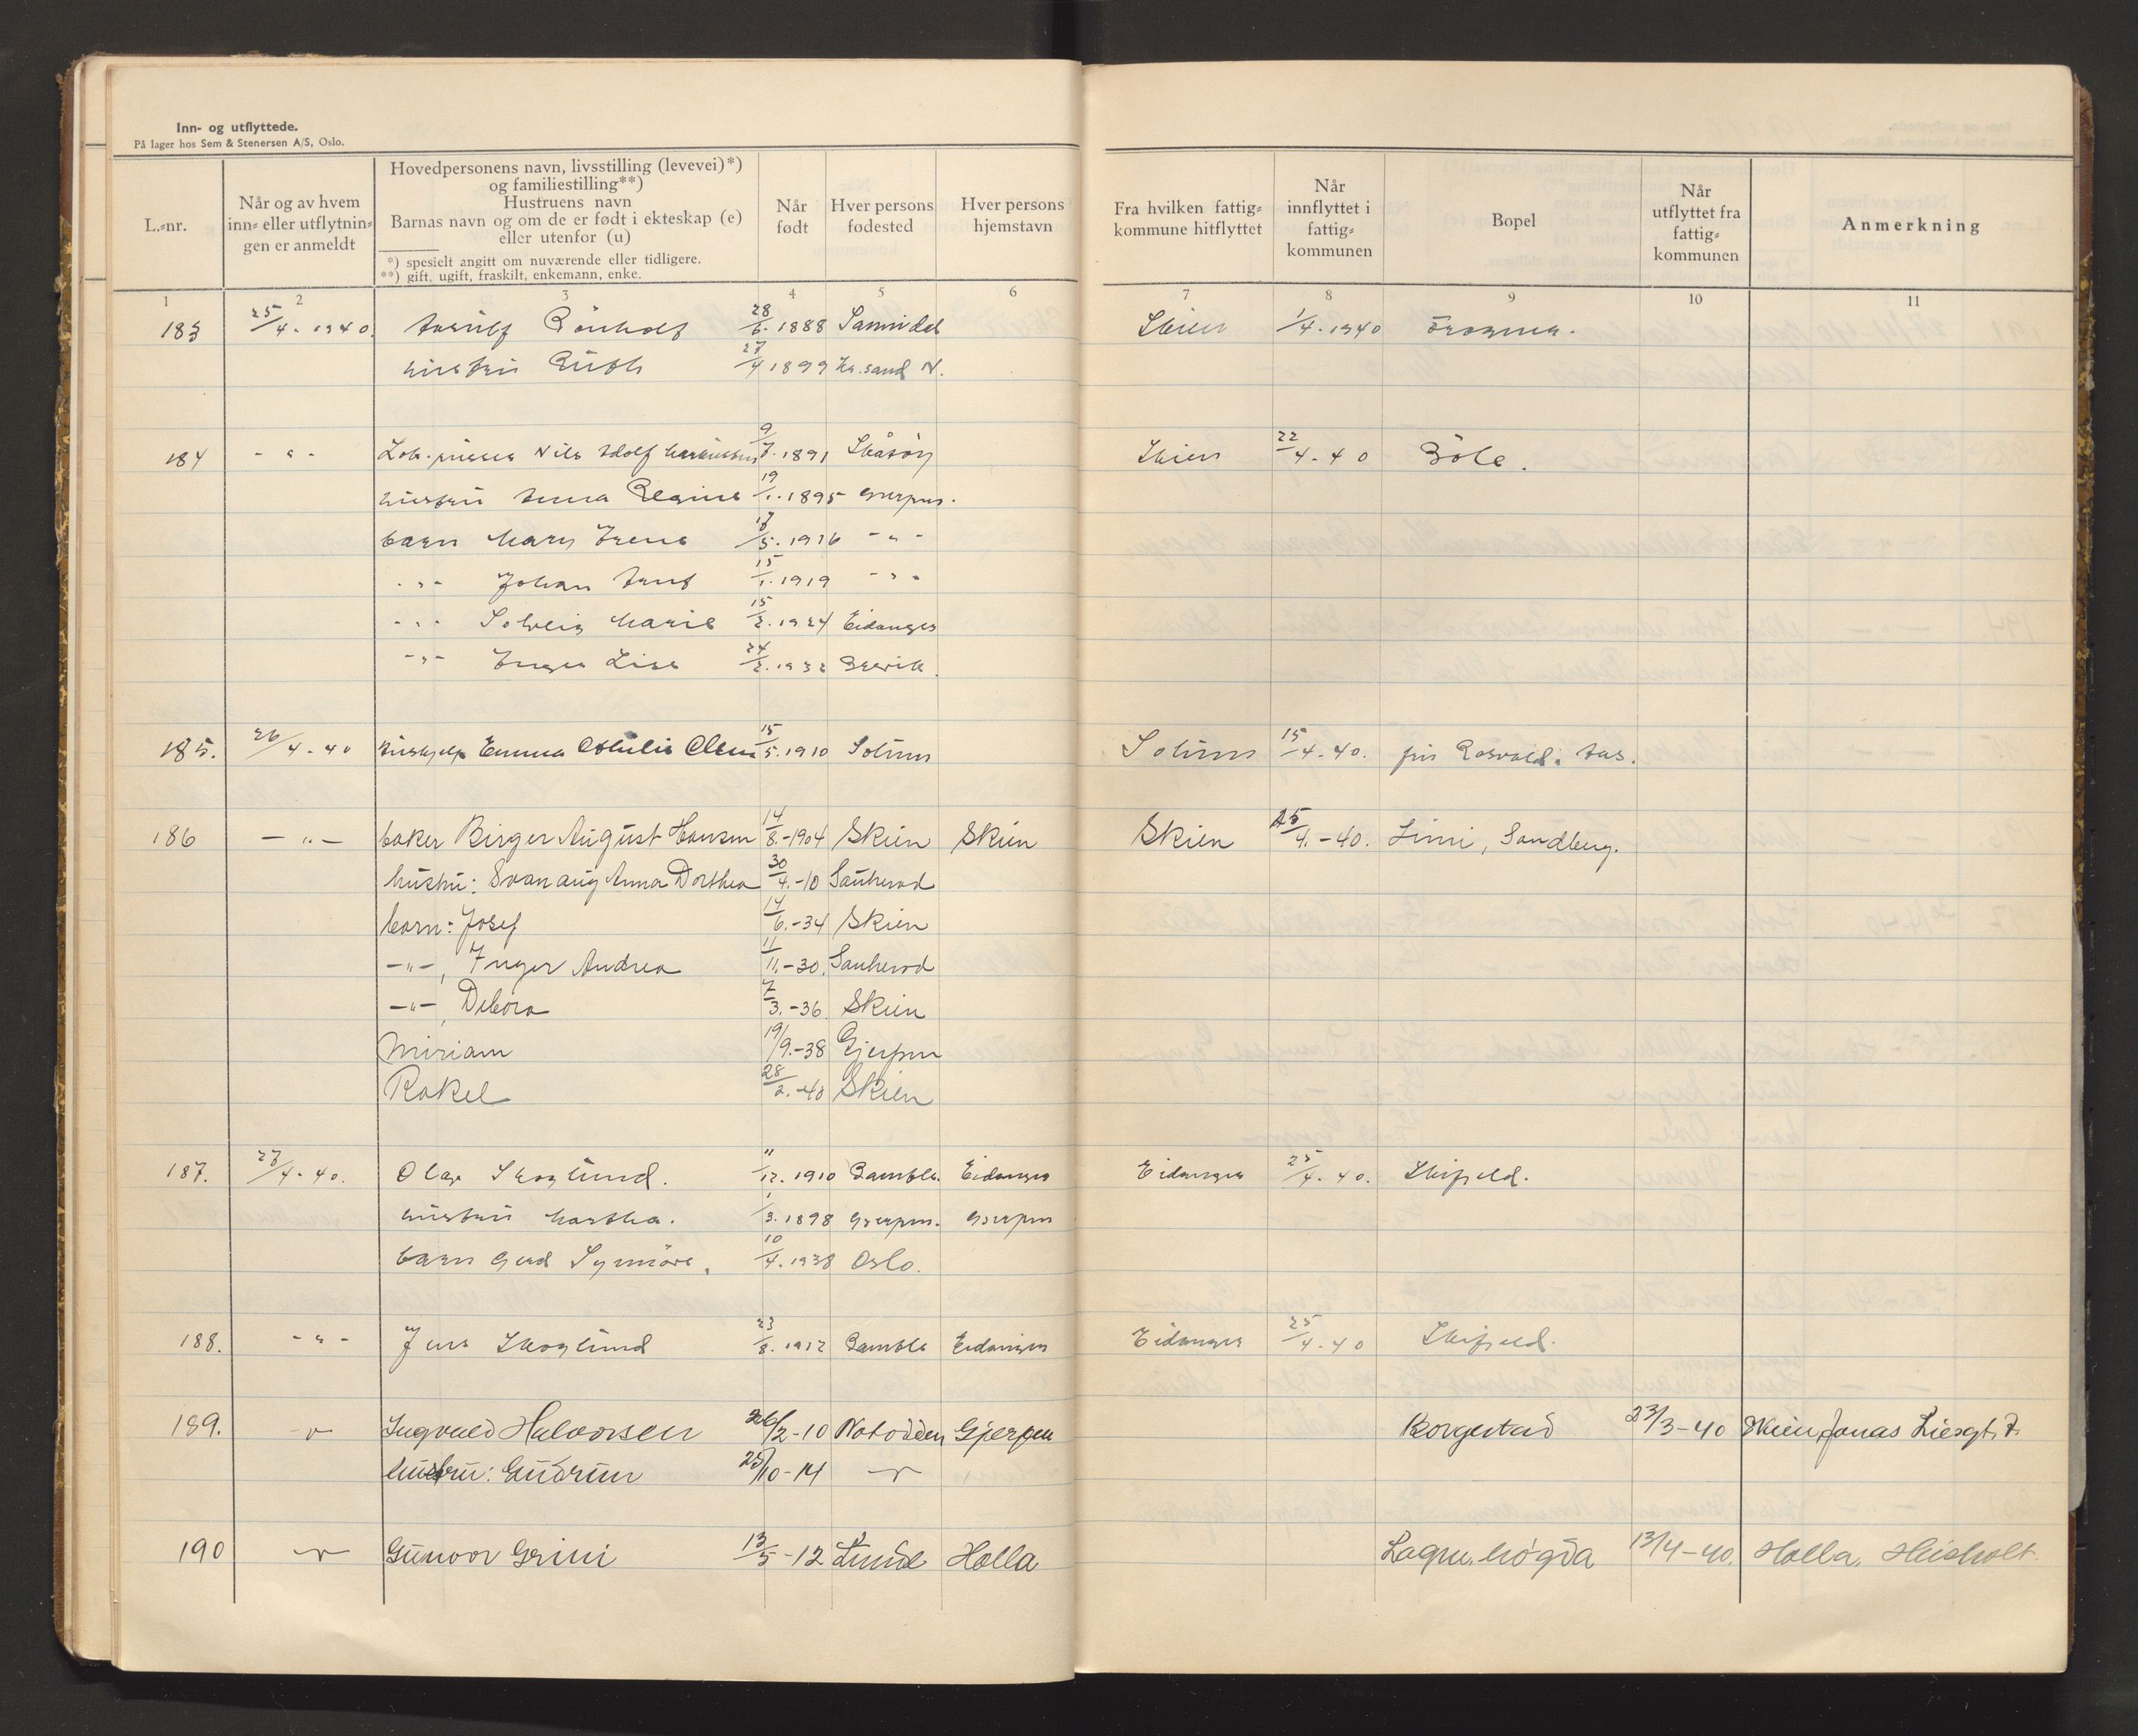 Inn- og utflyttede.
På lager hos Sem & Stenersen A/S, Oslo.
L.-nr.
Når og av hvem inn- eller utflytnin-gen er anmeldt
Hovedpersonens navn, livsstilling (levevei)*)
og familiestilling**)
Hustruens navn
Barnas navn og om de er født i ekteskap (e)
eller utenfor (u)
*) spesielt angitt om nuværende eller tidligere.
**) gift, ugift, fraskilt, enkemann, enke.
Når født
Hver persons fødested
Hver persons hjemstavn
Fra hvilken fattig-kommune hitflyttet
Når innflyttet i fattig-kommunen
Bopel
Når utflyttet fra fattig-kommunen
Anmerkning
1 2 3 4 5 6 7 8 9 10 11
183 25/4. 1940. 28/6. 1888 Skien 1/4. 1940
hustru Ruth 27/4 1899 Kr.sand N.
184 - " - Nils Adolf 9/7. 1891 Skåtøy Skien 22/4-40 Böle.
hustru Anna Regine 19/1. 1895 Gjerpen.
barn Mary Irene 17/5. 1916 - " -
- " - Johan 15/1. 1919 - " -
- " - Solveig Marie 15/2. 1924 Eidanger
- " - Inger Lise 24/2. 1932 Brevik.
185. 26/4-40 hushjelp Emma Otilie Olsen 15/5. 1910 Solum Solum 15/4-40. Aas.
186 - " - baker Birger August Hansen 14/8.-1904 Skien Skien Skien 25/4.-40. Limi, Sandberg.
hustru: Svanaug Anna Dorthea 30/4.-10 Sauherad
barn: Josef 14/6.-34 Skien
- " -, Inger Andrea 11/11.-30. Sauherad
- " -, Debora 7/3.-36. Skien
Miriam 19/9.-38 Gjerpen
Rakel 28/2.-40 Skien
187. 27/4-40. Olav Skoglund. 11/12. 1910 Bamble. Eidanger Eidanger 25/4-40. Skifjeld.
hustru Martha. 1/3. 1898 Gjerpen. Gjerpen
barn Gerd Synnöve. 10/4. 1938 Oslo.
188. - " - Jens Skoglund 23/8. 1912 Bamble Eidanger Eidanger 25/4-40 Skifjeld.
189. - " - Ingvald Halvorsen 26/2-10 Notodden Gjerpen Borgestad 23/3-40 Skien, Jonas Liesgt. 7.
hustru: Gudrun 25/10-14 - " -
190 - " - Gunvor Grini 13/5-12 Lunde Holla 13/4-40. Holla.